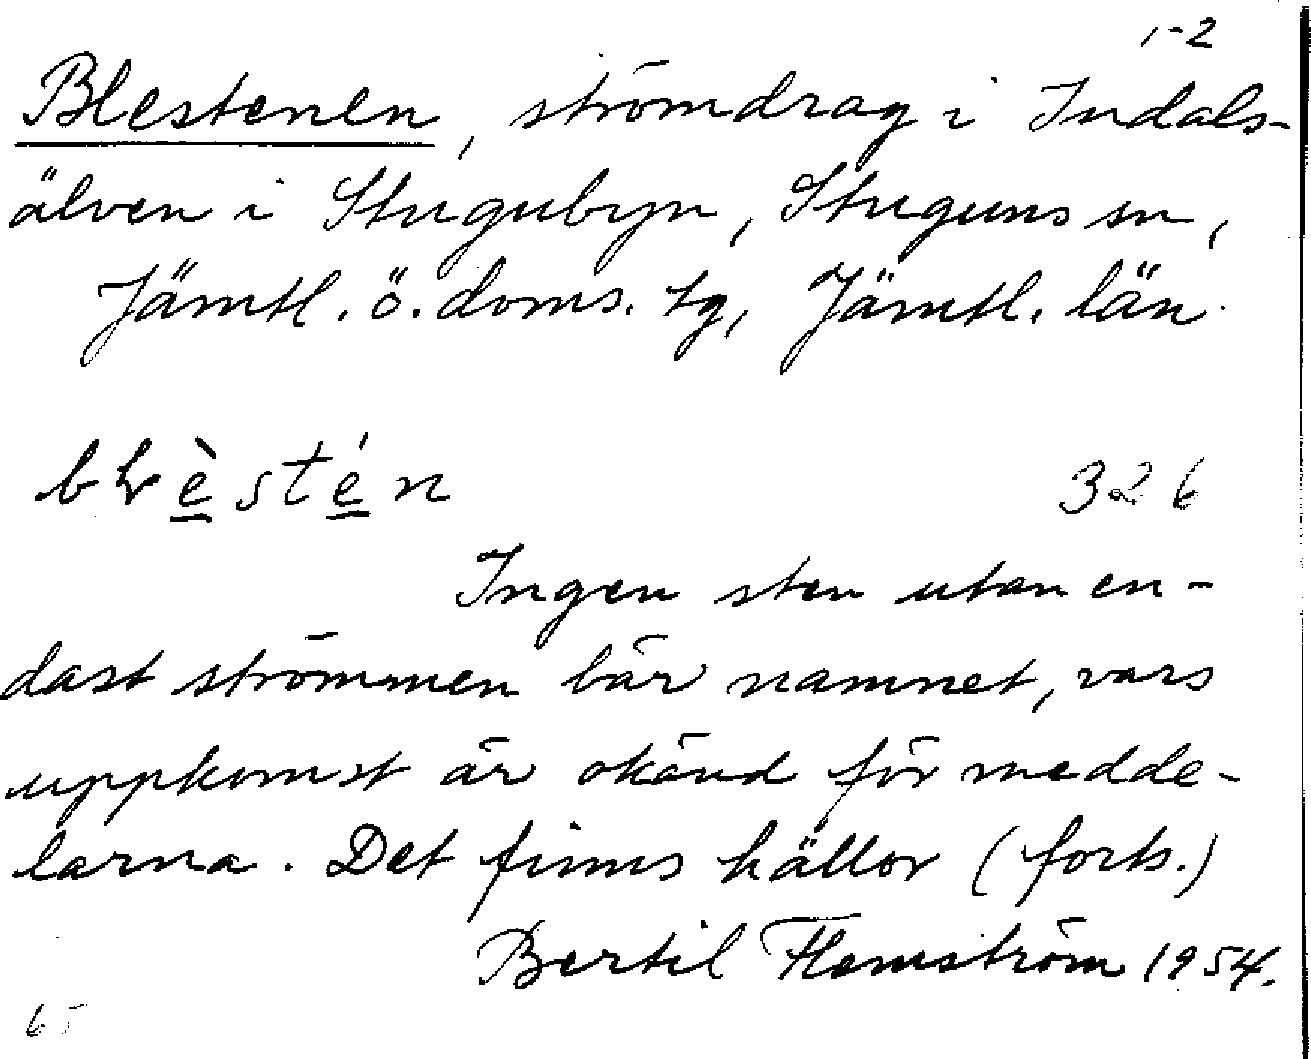 1-2
Blestenen, strömdrag i Indals-
älven i Stugubyn, Stuguns sn,
Jämtl. ö. doms. tg, Jämtl. län.
326
Ingen sten utan en-
dast strömmen bär namnet, vars
uppkomst är okänd för medde-
larna. Det finns hällor (forts.)
Bertil Flemström 1954.
65